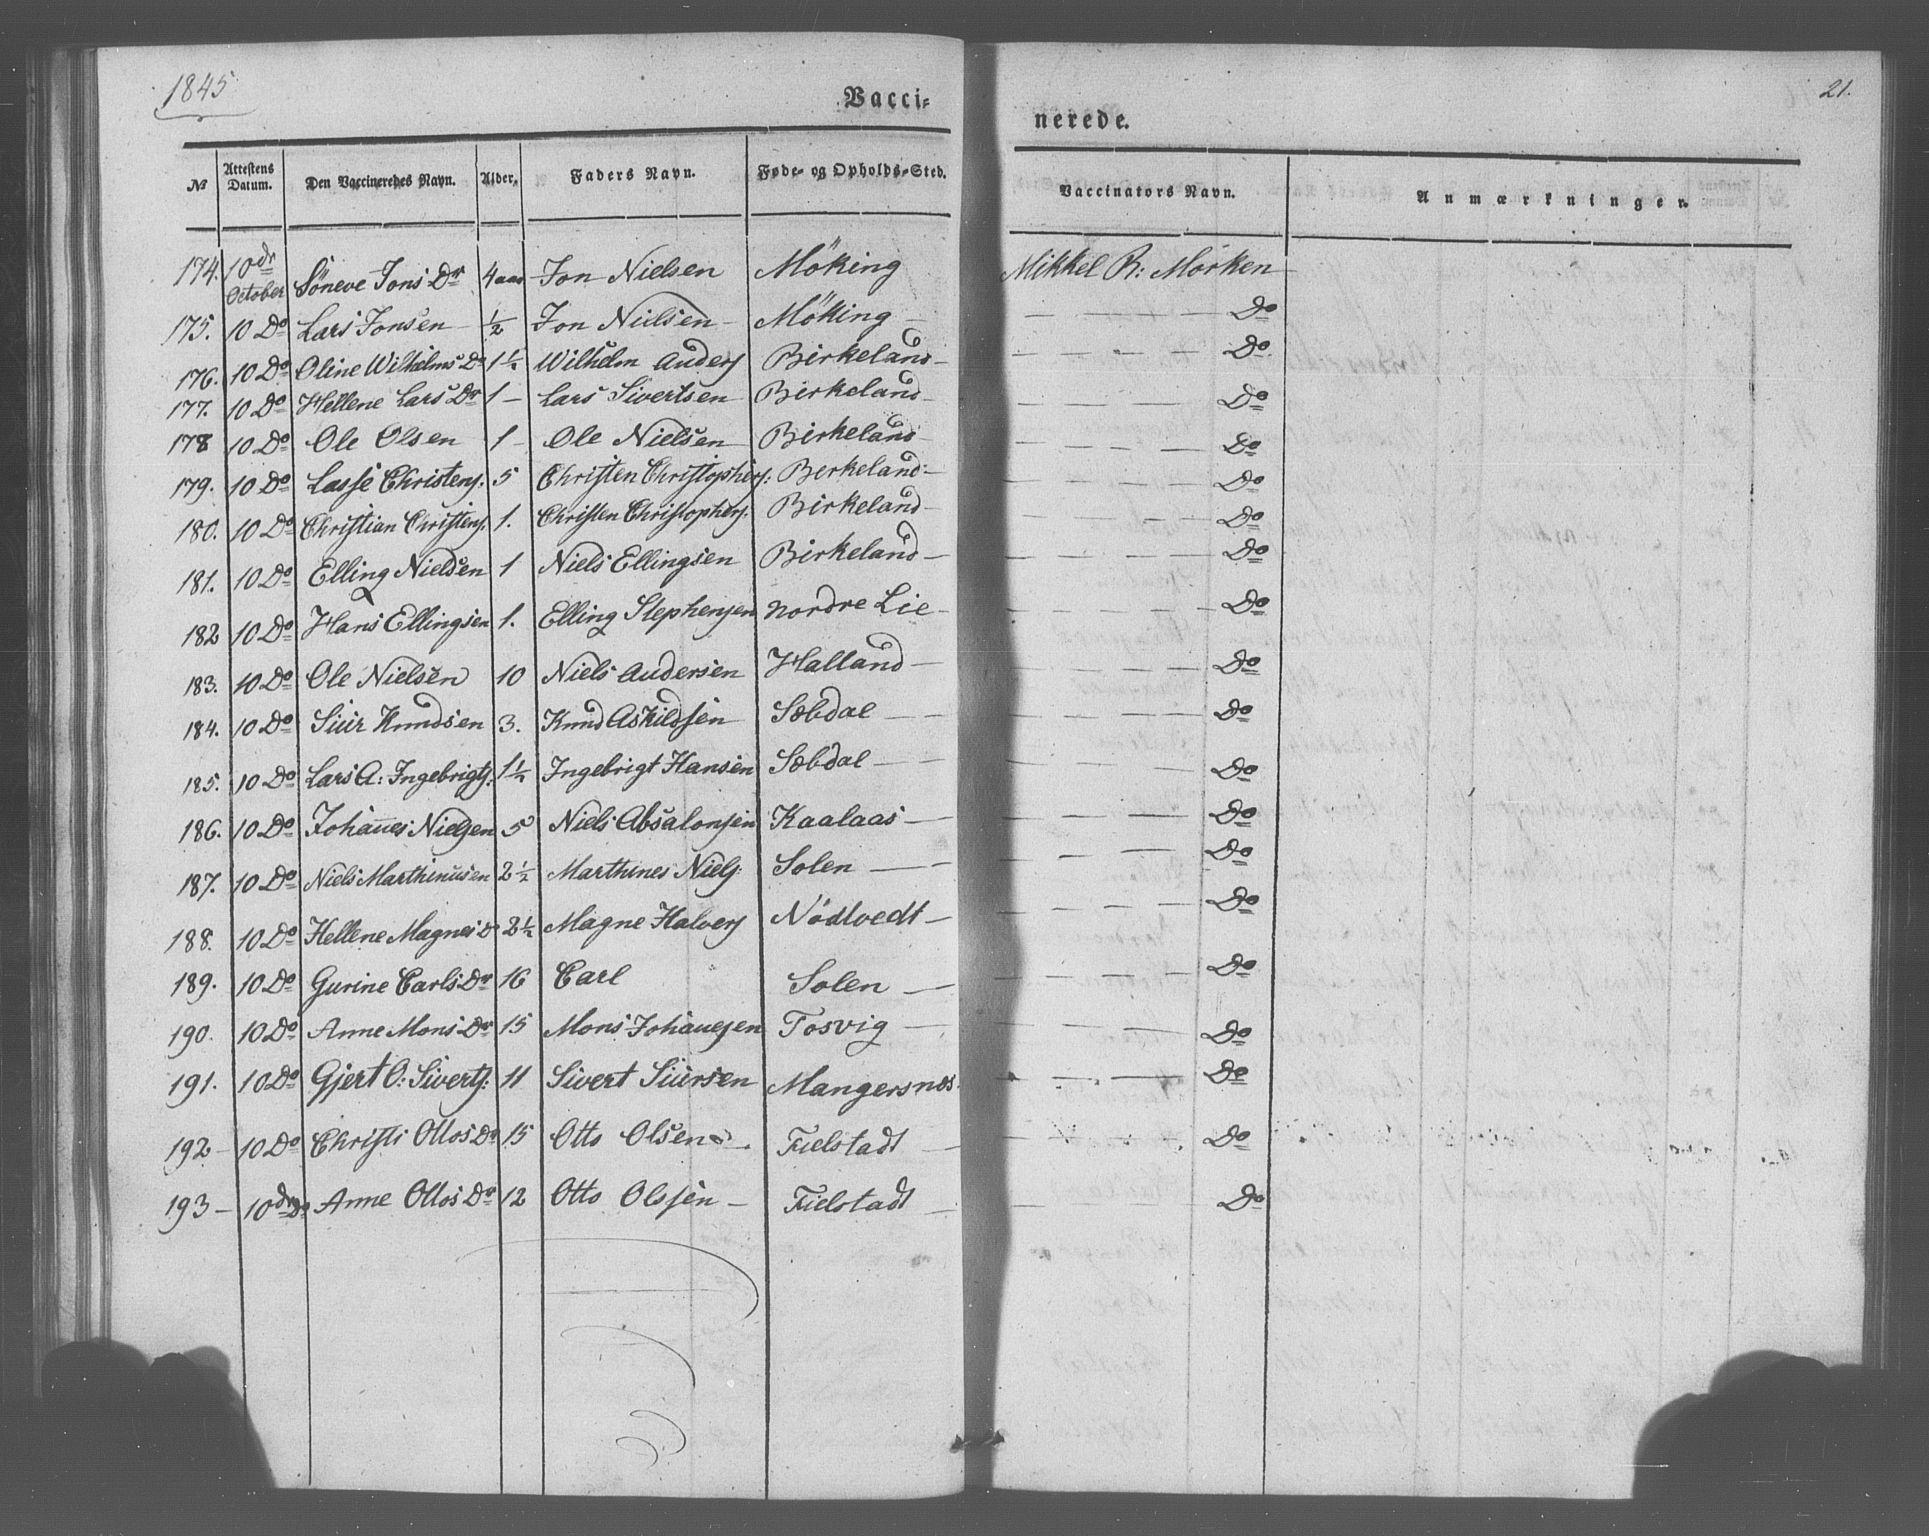 1845
Vacci-
nerede.
21.
No Attestens Datum. Den Vaccineredes Navn. Alder. Faders Navn. Føde- og Opholds-Sted. Vaccinators Navn. Anmærkninger.
174. 10de October Söneve Jons Dr 4 aar Jon Nielsen Möking Mikkel R: Morken
175. 10 Do Lars Jonsen ½ Jon Nielsen Möking Do
176. 10 Do Oline Wilhelms Dr 1½ Wilhelm Anders Birkeland Do
177. 10 Do Hellene Lars Dr 1 Lars Sivertsen Birkeland Do
178 10 Do Ole Olsen 1 Ole Nielsen Birkeland Do
179. 10 Do Lasse Christens: 5 Christen Christophers: Berkeland Do
180. 10 Do Christian Christens: 1. Christen Christophers: Birkeland Do
181. 10 Do Elling Nielsen 1 Niels Ellingsen Birkeland Do
182 10 Do Hans Ellingsen 1. Elling Stephensen Nordre Lie Do
183. 10 Do Ole Nielsen 10 Niels Andersen Halland Do
184. 10 Do Siur Knudsen 3. Knud Askildsen Sæbdal Do
185. 10 Do Lars A: Ingebrigts: 1½ Ingebrigt Hansen Sæbdal Do
186. 10 Do Johannes Nielsen 5 Niels Absalonsen Kaalaas Do
187. 10 Do Niels Marthinusen 2½ Marthines Niels: Solen Do
188. 10 Do Hellene Magnes D 2½ Magne Halvers Nödtvedt Do
189. 10 Do Gurine Carls Dr 16 Carl Solen Do
190. 10 Do Anne Mons Dr 15 Mons Johannesen Tosvig Do
191. 10 Do Gjert O: Siverts: 11 Sivert Siursen Mangersnæs Do
192 10 Do Christi Ottos Dr 15 Otto Olsen Fielstadt Do
193 10de Do Anne Ottos Dr 12 Otto Olssen Fielstadt Do